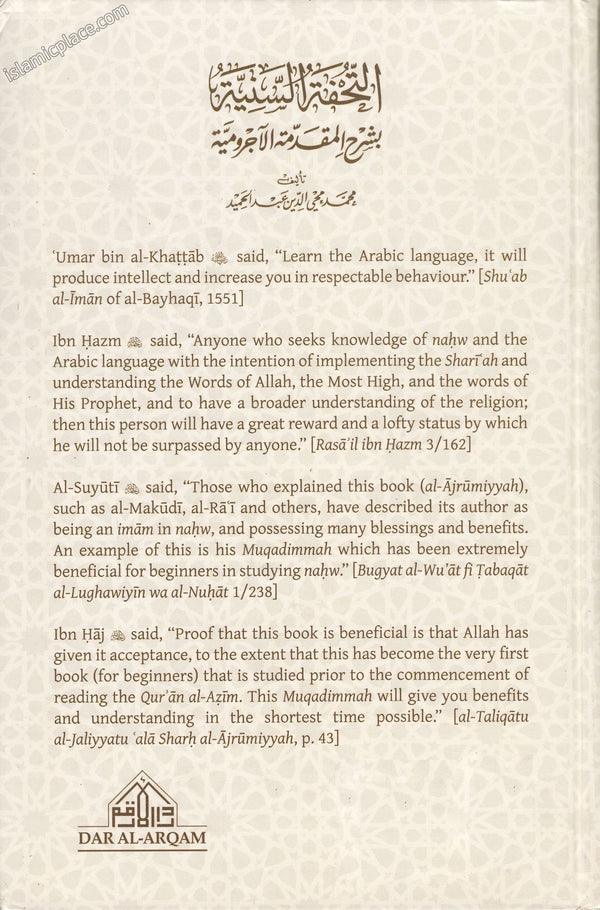 islamicplace.com
التحفة السنية
بشرح المقدمة الآجرومية
تأليف
محمد محيي الدين عبد الحميد
ʿUmar bin al-Khaṭṭāb said, “Learn the Arabic language, it will
produce intellect and increase you in respectable behaviour.” [Shuʿab
al-Īmān of al-Bayhaqī, 1551]
Ibn Ḥazm said, “Anyone who seeks knowledge of naḥw and the
Arabic language with the intention of implementing the Sharīʿah and
understanding the Words of Allah, the Most High, and the words of
His Prophet, and to have a broader understanding of the religion;
then this person will have a great reward and a lofty status by which
he will not be surpassed by anyone.” [Rasāʾil ibn Ḥazm 3/162]
Al-Suyūtī said, “Those who explained this book (al-Ājrūmiyyah),
such as al-Makūdī, al-Rāʿī and others, have described its author as
being an imām in naḥw, and possessing many blessings and benefits.
An example of this is his Muqadimmah which has been extremely
beneficial for beginners in studying naḥw.” [Bugyat al-Wuʾāt fi Ṭabaqāt
al-Lughawiyīn wa al-Nuḥāt 1/238]
Ibn Ḥāj said, “Proof that this book is beneficial is that Allah has
given it acceptance, to the extent that this has become the very first
book (for beginners) that is studied prior to the commencement of
reading the Qurʾān al-Aẓīm. This Muqadimmah will give you benefits
and understanding in the shortest time possible.” [al-Taliqātu
al-Jaliyyatu ʿalā Sharḥ al-Ājrumiyyah, p. 43]
دار الأرقم
DAR AL-ARQAM